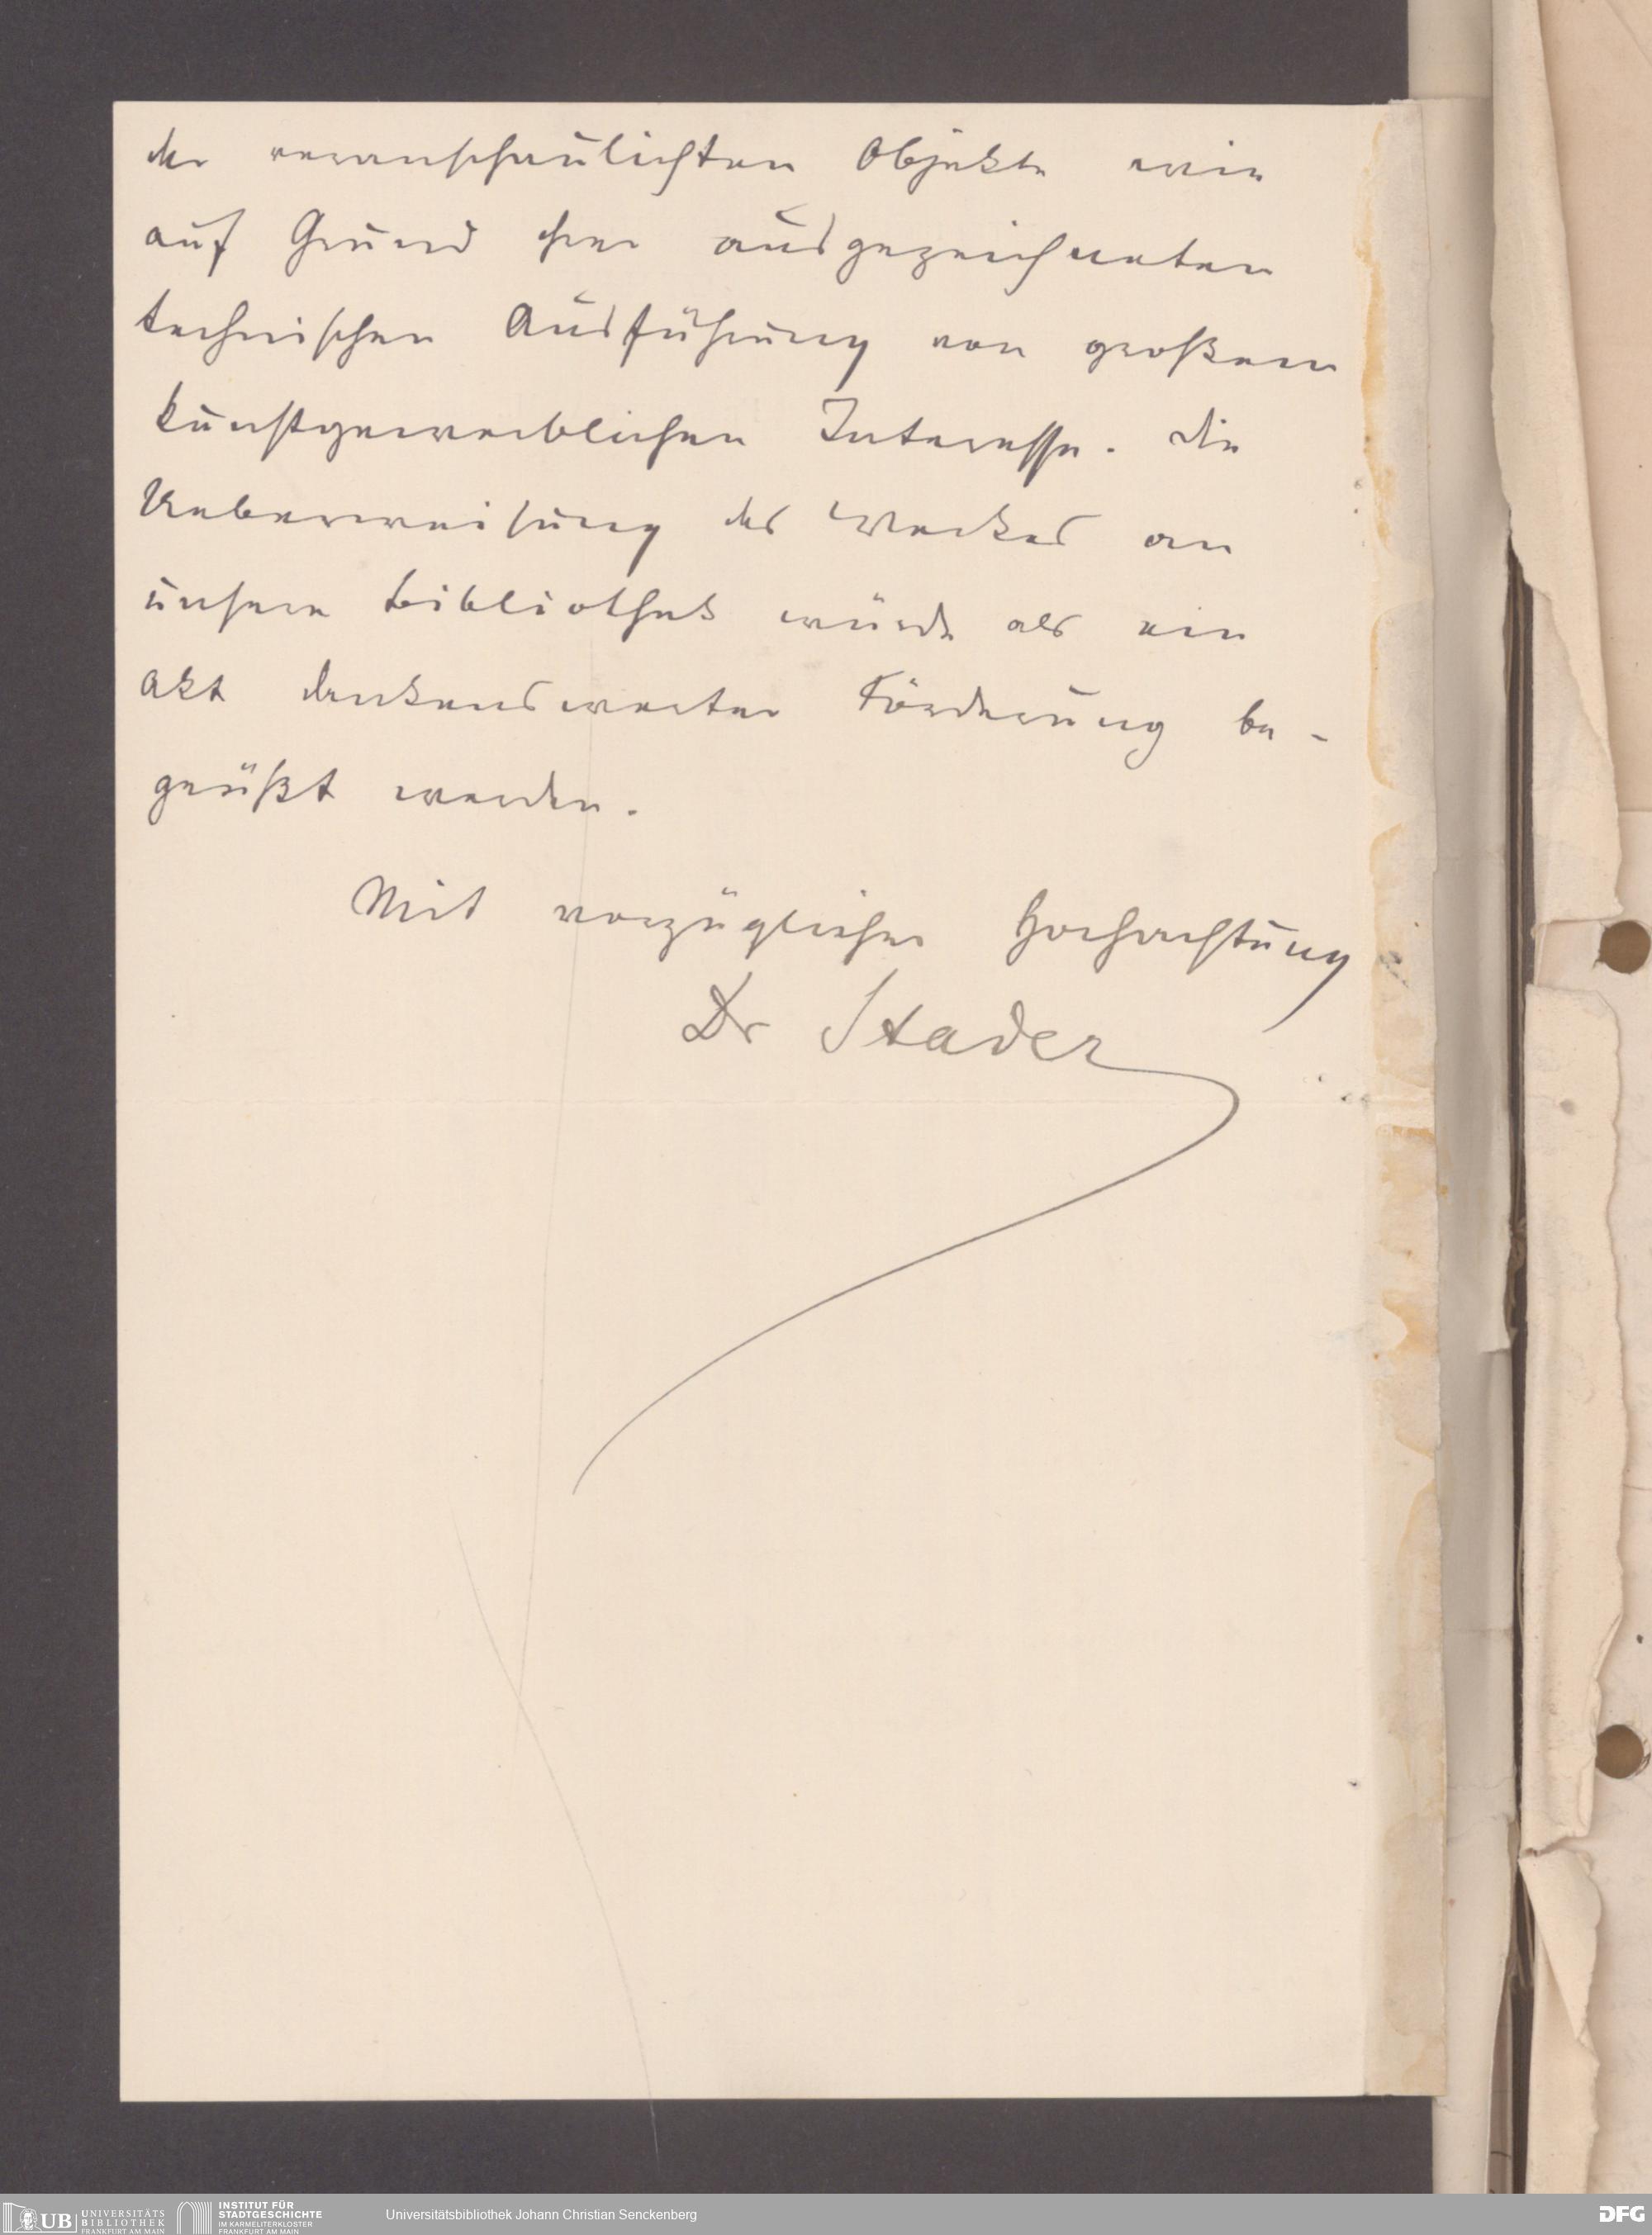 der veranschaulichten Objekte wie
auf Grund ihrer ausgezeichneten
technischen Ausführung von großem
kunstgewerblichen Interesse. Die
Ueberweisung des Werkes an
unsere Bibliothek würde als ein
Akt dankenswerter Förderung be-
grüßt werden.
Mit vorzüglicher Hochachtung
Dr Stader
UB UNIVERSITÄTS BIBLIOTHEK FRANKFURT AM MAIN
INSTITUT FÜR STADTGESCHICHTE IM KARMELITERKLOSTER FRANKFURT AM MAIN
Universitätsbibliothek Johann Christian Senckenberg
DFG